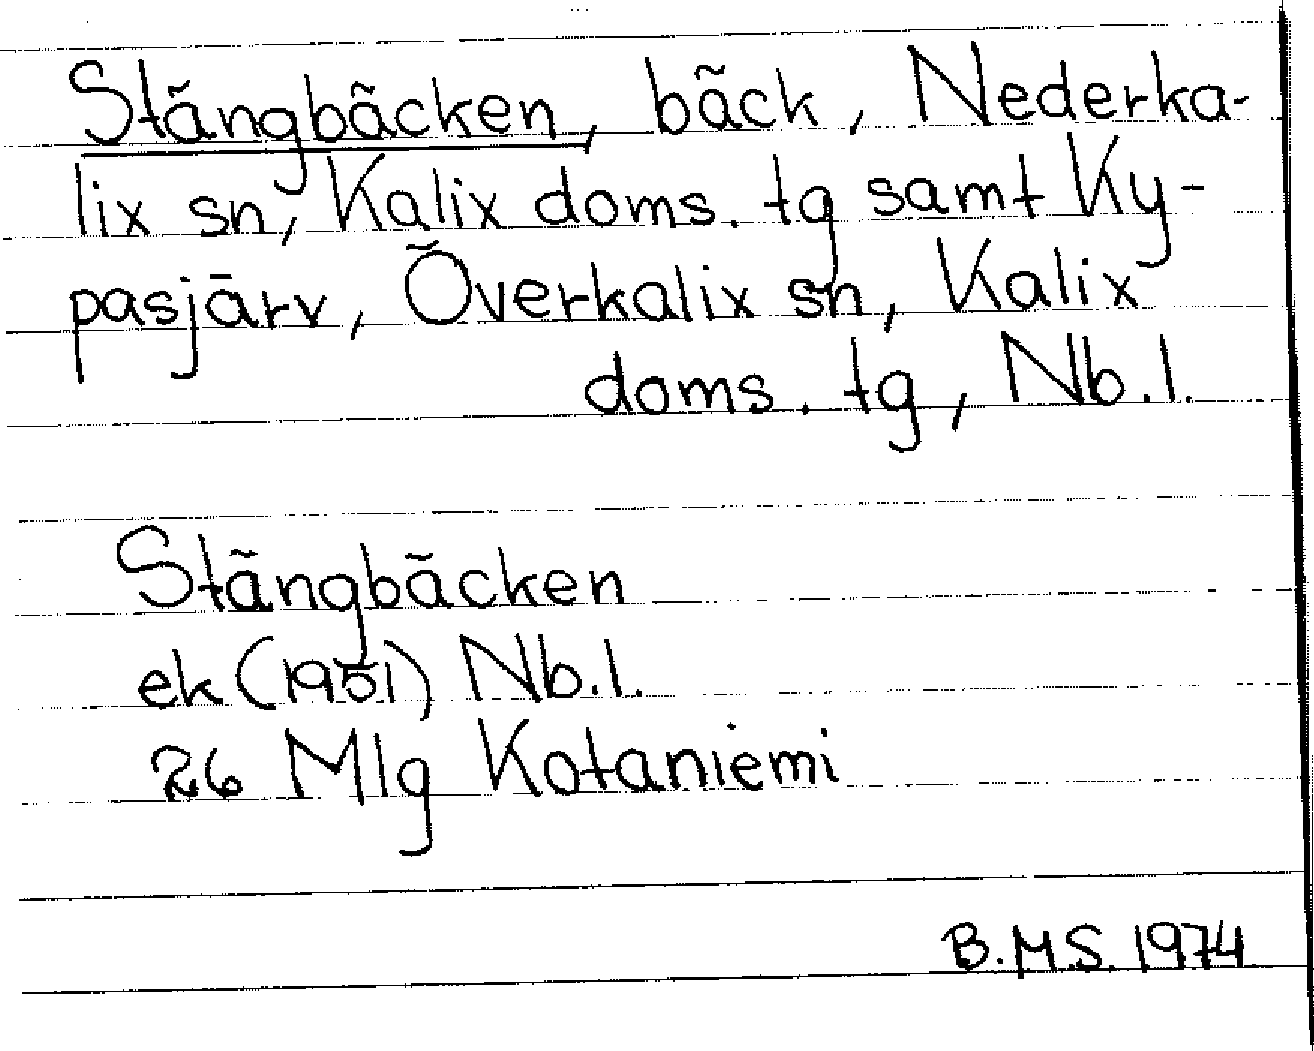 Stängbäcken, bäck, Nederka-
lix sn, Kalix doms. tg samt Ky-
pasjärv, Överkalix sn, Kalix
doms. tg, Nb. l.
Stängbäcken
ek (1951) Nb. l.
26 Mlg Kotaniemi
B.M.S. 1974